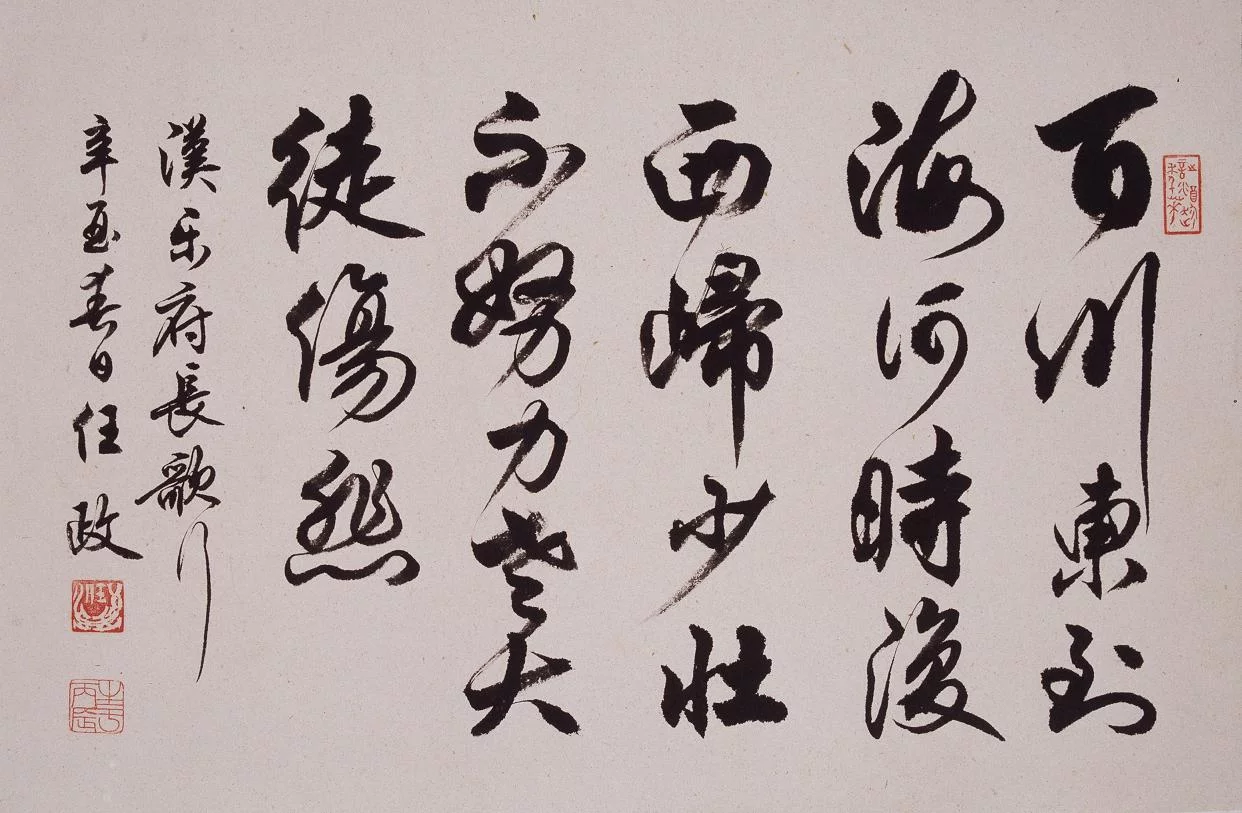 百川東到
海何時復
西歸少壯
不努力老大
徒傷悲
漢乐府長歌行
辛酉春日任政